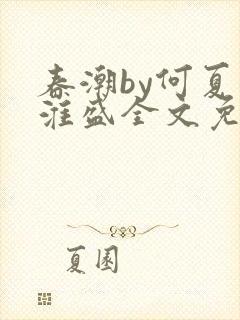 春潮by何夏
淮盛全文免
夏園